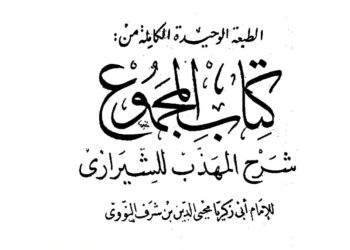 الطبعة الوحيدة الكاملة من:
كتاب المجموع
شرح المهذب للشيرازى
للإمام أبى زكريا محيى الدين بن شرف النووى